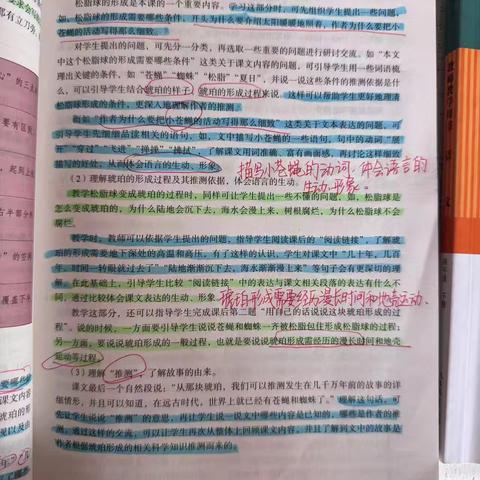 松脂球的形成是本课的一个重要内容。学习这部分时,可先组织学生提出一些问
题,如,松脂球的形成需要哪些条件,开头为什么要介绍太阳暖暖地照着,作者为什么要把小
苍蝇的活动写得那么细致。
对学生提出的问题,可先分一分类,再选取一些重要的问题进行研讨交流。如“本文
中这个松脂球的形成需要哪些条件”这类关于课文内容的问题,可引导学生用一些词语梳
理出关键的条件,如“苍蝇”“蜘蛛”“松脂”“夏日”,并说一说这些条件的推测依据是什
么,可以引导学生结合琥珀的样子、琥珀的形成过程来说。这样可以帮助学生更好地理清
松脂球形成的条件,更深入地理解作者的推测。
再如“作者为什么要把小苍蝇的活动写得那么细致”这类关于文本表达的问题,可
引导学生先细细品读相关的语句,如,文中描写小苍蝇的一些语句,句中的动词“展
开”“穿过”“飞进”“掸掸”“拂拭”,了解课文用词准确、富有画面感,再讨论这样细致
描写的好处,从而体会语言的生动、形象。
描写小苍蝇的动词,体会语言的
生动、形象。
(2)理解琥珀的形成过程及其推测依据,体会语言的生动。
教学松脂球变成琥珀的过程时,同样可让学生提出一些不懂的问题,如,松脂球是
怎么变成琥珀的,为什么陆地会沉下去、海水会漫上来、树根腐烂,为什么松脂球不会
腐烂。
教学时,教师可以依据学生提出的问题,指导学生阅读课后的“阅读链接”,了解琥
珀的形成需要地下深处的高温和高压,有了这样的认识,学生对课文中“几十年,几百
年,时间一转眼就过去了”“陆地渐渐沉下去,海水渐渐漫上来”等句子会有更深切的理
解。在此基础上,引导学生比较“阅读链接”中的表达与课文相关段落的表达有什么不
同,通过比较体会课文表达的生动、形象。
琥珀形成需要经历漫长时间和地壳运动。
教学这部分,还可以指导学生完成课后第二题“用自己的话说说这块琥珀形成的过
程”。说的时候,一方面要引导学生说说苍蝇和蜘蛛一齐被松脂包住形成松脂球的过程;
另一方面,要说说琥珀形成的一般过程,也就是要说说琥珀形成需经历的漫长时间和地壳
运动等过程。
(3)理解“推测”,了解故事的由来。
课文最后一个自然段说:“从那块琥珀,我们可以推测发生在几千万年前的故事的详
细情形,并且可以知道,在远古时代,世界上就已经有苍蝇和蜘蛛了。”理解这句话,可
先让学生说说“推测”的意思,再让学生说一说文中哪些内容是已知的,哪些是作者的推
测。通过这样的交流,可以让学生再次从整体上回顾课文内容,并且了解到文中的故事是
作者根据琥珀形成的相关科学知识推测而来的。